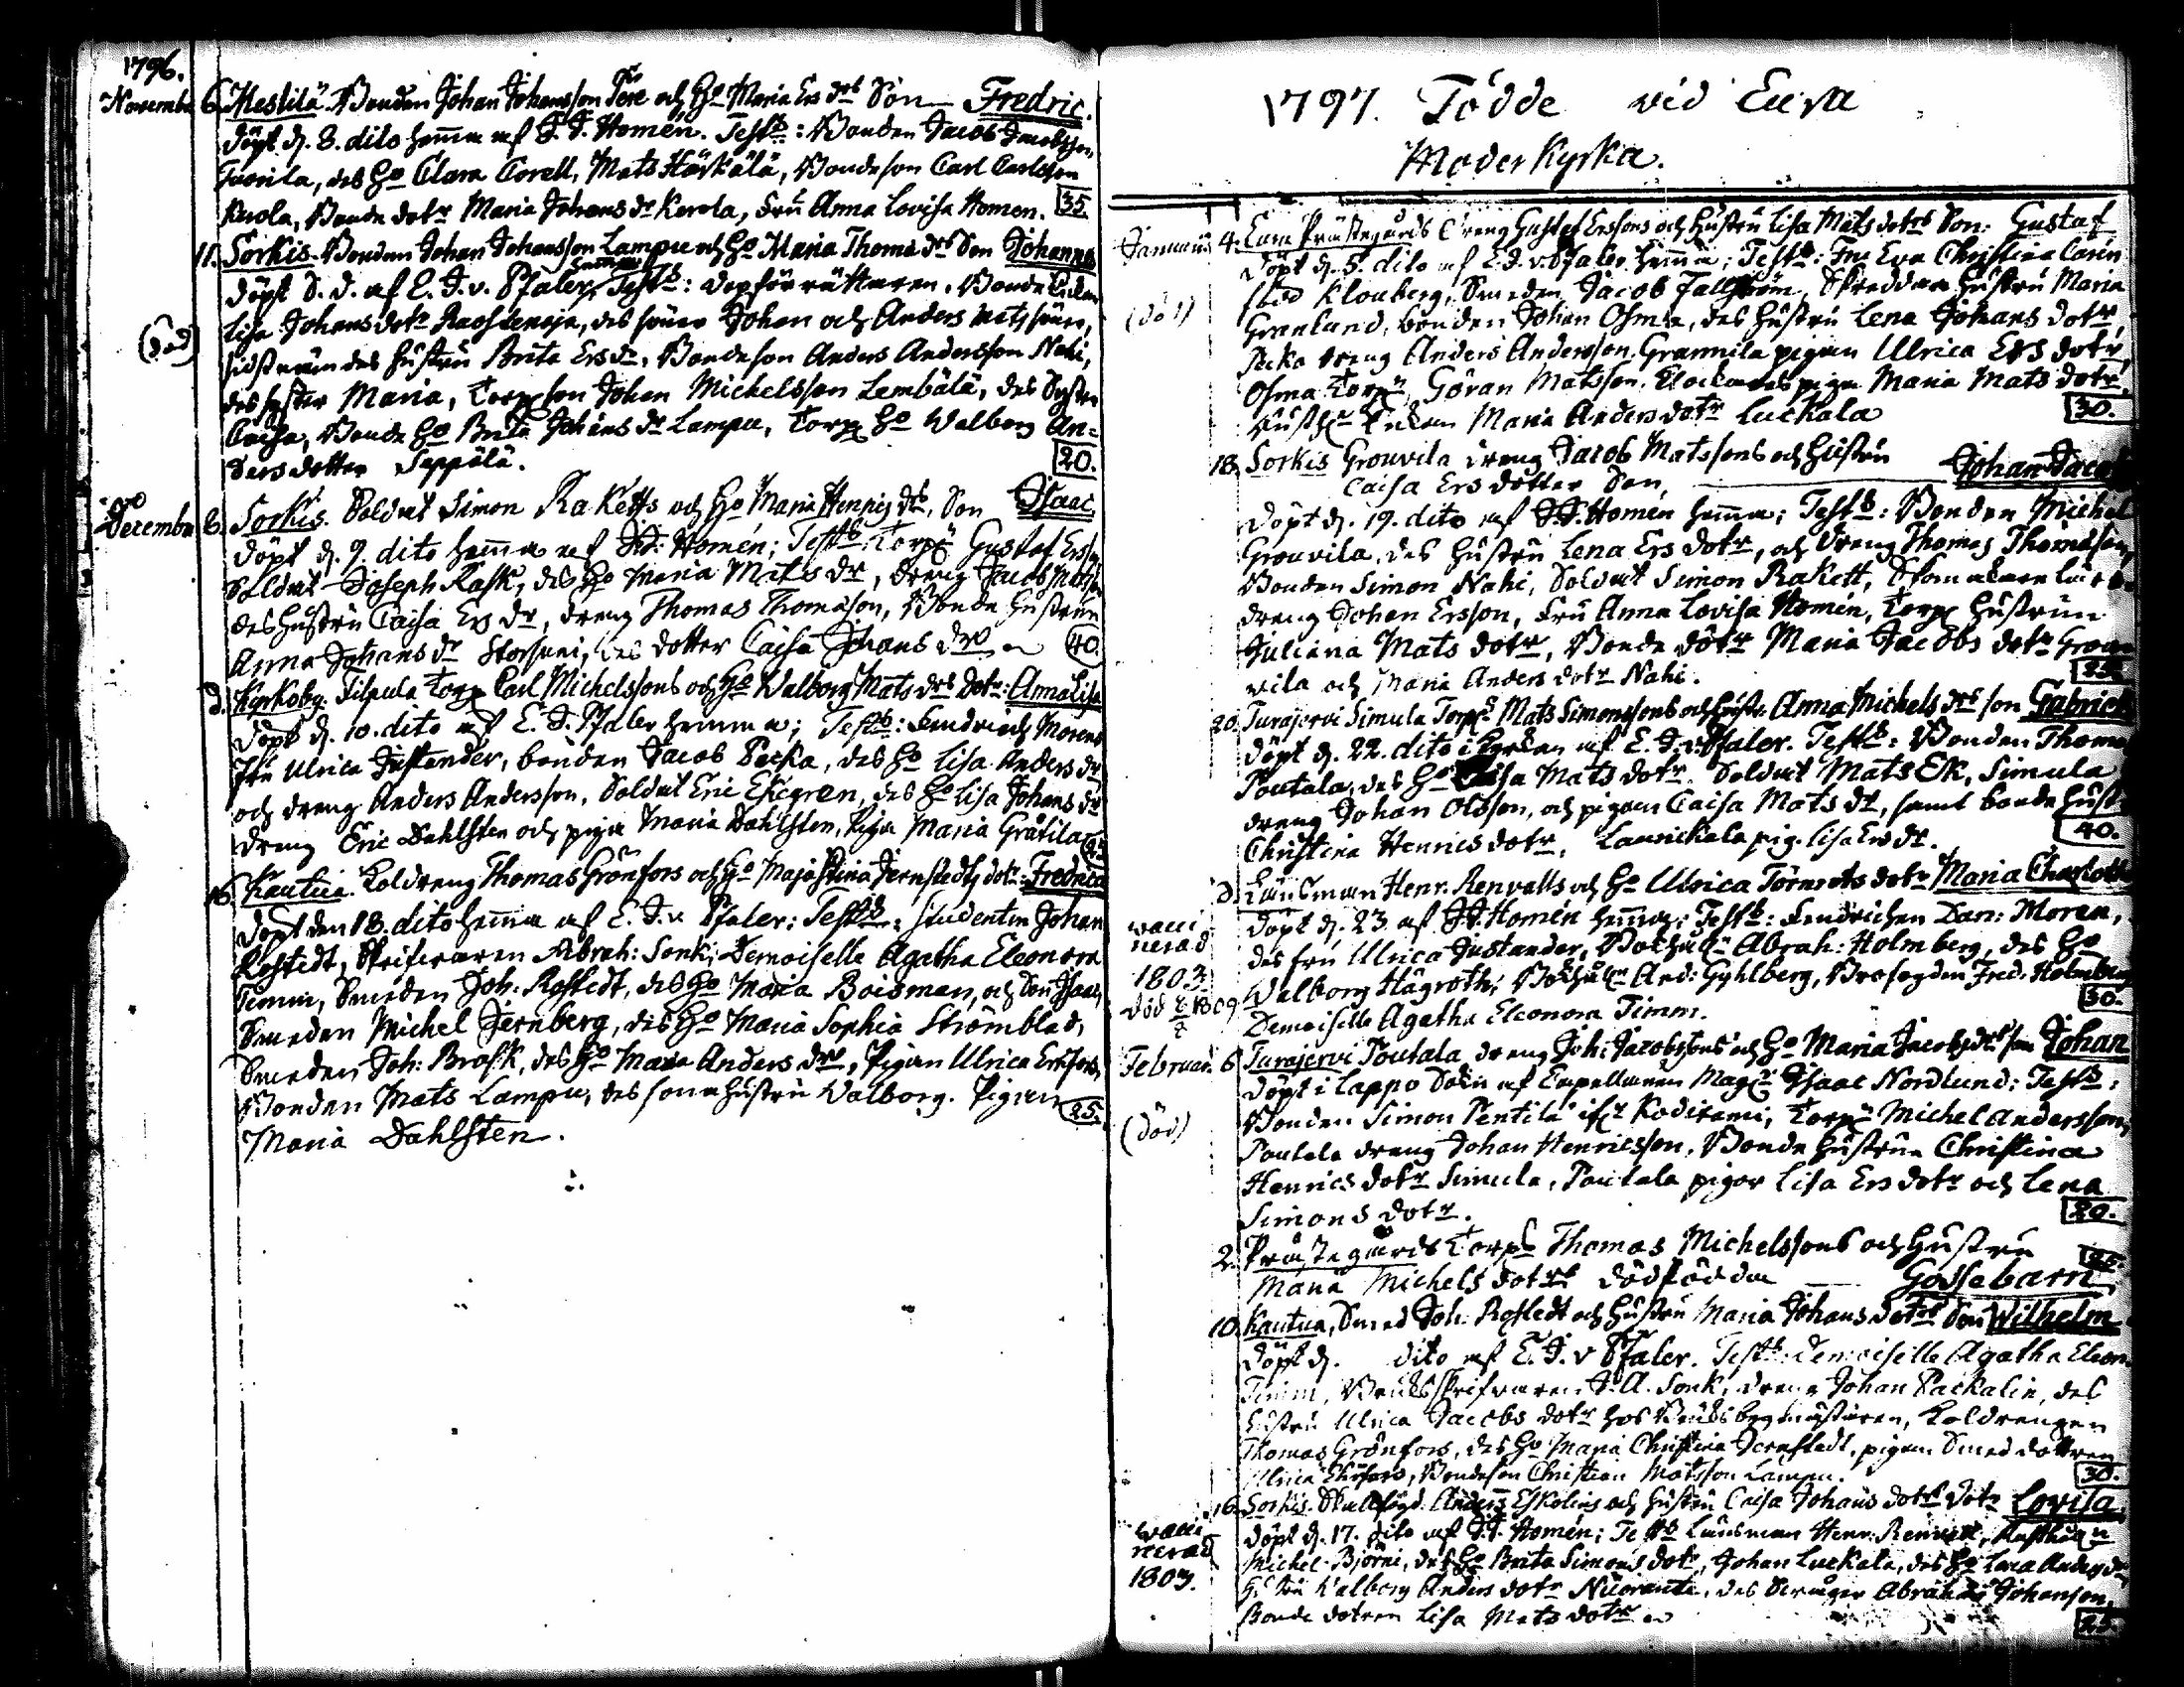 1796.
Novembr 6. Mestilä. Bonden Johan Johansson Tere och Ho Maria Ers drs Son Fredric.
döpt d. 8. dito hema af J. J. Homén. Testb: Bonden Jacob Jacobsson
des Ho Clara Corell, Mats Härkälä, Bondeson Carl Carlsson
Bonde dotr Maria Johans dr Kerola, Fru Anna Lovisa Homen. 35.
11. Sorkis. Bonden Johan Johansson Lampu och Ho Maria Thoma drs Son Johannes
döpt S. D. af E. J. v. Pfaler hemma Testb: Dopförrättaren, Bonde Enkan
Lisa Johans dotr des söner Johan och Anders Mats söner,
(död)
des hustru Brita Ers dr, Bondeson Anders Andersson Nahi,
des syster Maria, Torp son Johan Michelsson Lembälä, des Syster
Caisa, Bonde Ho Brita Johans dr Lampu, Torp Ho Walborg An=
ders dotter Seppälä. 20.
Decembr 8. Sorkis. Soldat Simon Raketts och Ho Maria Henrics drs. Son Isaac.
döpt d. 9. dito hema af J. J. Homén; Testb: Torp Gustaf Ersson
Soldat Joseph Rask, des Ho Maria Mats dr, dreng Jacob Matsson
des hustru Caisa Ers dr, dreng Thomas Thomason, Bonde hustrun
Anna Johans dr Storsuni, des dotter Caisa Johans dr 40.
d. Kyrkoby. Torp Carl Michelssons och Ho Walborg Mats drs dotr: Anna Lisa
döpt d. 10. dito af E. J. Pfaler hemma; Testb: Fendrich Morens
Fru Ulrica Justander, bonden Jacob Pecka, des Ho Lisa Anders dr
och dreng Anders Andersson, Soldat Eric Ekegren, des Ho Lisa Johans dr
dreng Eric Dahlsten och piga Maria Dahlsten, Piga Maria Gråtila
16. Kautua. Koldreng Thomas Grönfors och Ho Maja Stina Jernstedts dotr: Fredrica
döpt den 18. dito hema af E. J. v. Pfaler; Testb: Studenten Johan
Rostedt, Skrifvaren Abrah: Sonk; Demoiselle Agatha Eleonora
Timm, Smeden Joh: Rostedt, des Ho Maria Boisman, och Son Isaac,
Smeden Michel Jernberg, des Ho Maria Sophia Strömblad,
Smeden Joh: Brask, des Ho Maria Anders dr, Pigan Ulrica
Bonden Mats Lampu, des sona hustru Walborg. Pigan
Maria Dahlsten. 25.
1797. Födde vid Eura
Moderkyrka.
Januari 4. Eura Prästegårds dreng Gustaf Erssons och hustru Lisa Mats dotrs Son: Gustaf
döpt d. 5. dito af E. J. v. Pfaler hemma; Testb: Fru Eva Christina
Klouberg, Smeden Jacob Fallström, Skreddare hustru Maria
(död)
Granlund, bonden Johan Osma, des hustru Lena Johans dotr,
Pecka dreng Anders Andersson. Grannila pigan Ulrica Ers dotr,
Osma Torp Göran Matsson. Clockarens piga Maria Mats dotr
Enkan Maria Anders dotr Luckala 30.
18. Sorkis Grouvila dreng Jacob Matssons och hustru
Caisa Ers dotter Son, Johan Jacob
döpt d. 19. dito af J. J. Homén hema; Testb: Bonden Michel
Grouvila, des hustru Lena Ers dotr, och dreng Thomas Thomason,
Bonden Simon Nahi, Soldat Simon Rakett,
dreng Johan Ersson, Fru Anna Lovisa Homén, Torp hustrun
Juliana Mats dotr, Bonde dotr Maria Jacobs dotr Grou
vila och Maria Anders dotr Nahi. 25.
20. Turajervi Simula Torp Mats Simonssons och hustr: Anna Michels drs son Gabriel
döpt d. 22. dito i Kyrkan af E. J. v. Pfaler. Testb: Bonden Thomas
Poutala, des Ho Caisa Mats dotr. Soldat Mats Ek, Simula
dreng Johan Olsson, och pigan Caisa Mats dr, samt bonde hustr
Christina Henrics dotr, Laurickala pig. Lisa Ers dr. 40.
d. Länsman Henr. Renvalls och Ho Ulrica Törnrots dotr Maria Charlotta
vacci
nerad
1803.
död 1809
döpt d. 23. af J. J. Homén hemma; Testb: Fendrichen Dan: Moren,
des fru Ulrica Justander, Abrah: Holmberg, des Ho
Walborg Hägroth; And: Gyhlberg, Fred: Holmberg
Demoiselle Agatha Eleonora Timm. 30.
Februari 6. Turajervi Poutala dreng Joh: Jacobssons och Ho Maria Jacobs drs son Johan
döpt i Lappo Sokn af Capellanen Mag Isaac Nordlund; Testb:
(död)
Bonden Simon Pentilä Torp Michel Andersson,
Poutala dreng Johan Henricsson, Bonde hustrun Christina
Henrics dotr Simula, Poutala pigor Lisa Ers dotr och Lena
Simons dotr. 20.
2. Prästegårds Torp Thomas Michelssons och hustru 25.
Maria Michels dotrs dödfödda Gossebarn
10. Kautua, Smed Joh: Rostedt och hustru Maria Johans dotrs Son Wilhelm
döpt d. dito af E. J. v Pfaler. Testb: Demoiselle Agatha Eleon.
Timm, Bruksskrifvaren J. A. Sonk, dreng Johan Packalin, des
hustru Ulrica Jacobs dotr hos Bruks byggmästaren, Koldrengen
Thomas Grönfors, des Ho Maria Christina Jernstedt, pigan Smed dottren
Ulrica Bondeson Christian Matsson Lampu. 30.
16. Sorkis. Anders Eskolins och hustru Caisa Johans dotrs dotr Lovisa
vacci
nerad
1803.
döpt d. 17. dito af J. J. Homén; Testb Länsman Henr: Renvall,
Michel Björni, des Ho Brita Simons dotr, Johan Luckala, des Ho Lena Anders dr
Walborg Anders dotr des Abraham Johanson,
Bonde dotren Lisa Mats dotr 25.